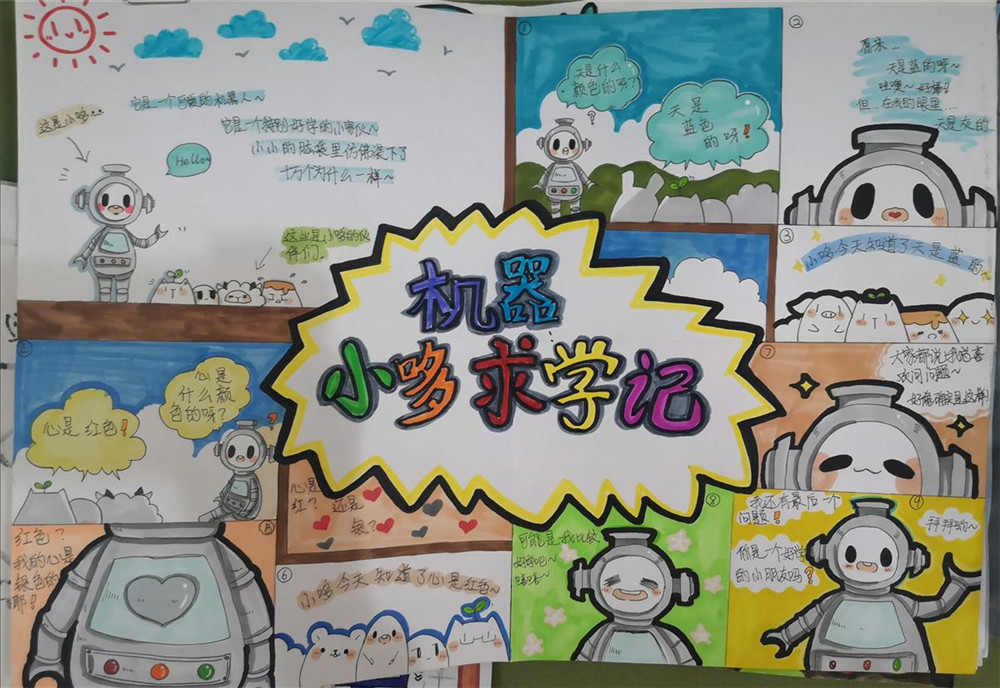 它是一个可爱的机器人～
这是小哆··
它是一个特别好学的小家伙～
小小的脑袋里仿佛装下了
十万个为什么一样～
Hello～
这些是小哆的伙
伴们.
①
天是什么
颜色的呀?
?
天是
蓝色
的呀!
②
原来...
天是蓝的呀～
哇噢～好棒!
但...在我的眼里...
天是灰的
③
小哆今天知道了天是蓝的～
机器
小哆求学记
心是红色!
心是
什么颜
色的呀?
?
⑤
红色?
我的心是
银色的
耶!
心是
红?还是
银?
⑥
小哆今天知道了心是红色～
⑦
大家都说我喜
欢问问题～
好像确实是这样!
⑧
可能是我比较
好学吧～
嘻嘻～
⑨
我还有最后一个
问题!
你是一个好学
的小朋友吗?
拜拜哟～